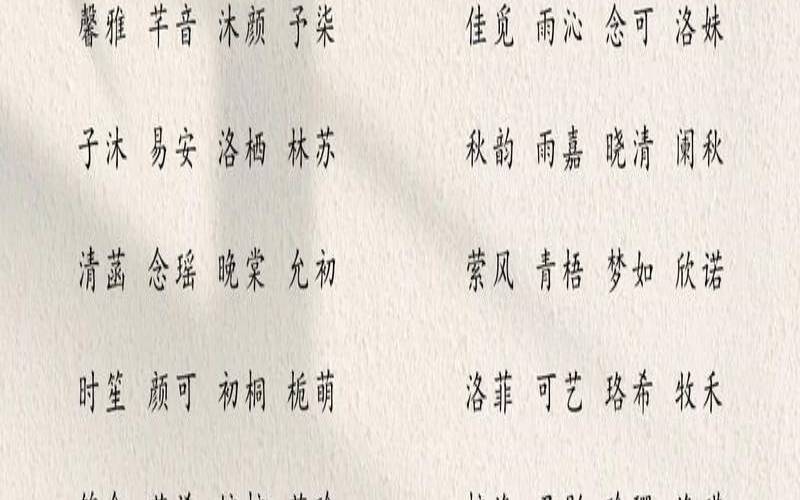 馨雅 芊音 沐颜 予柒 佳觅 雨沁 念可 洛妹
子沐 易安 洛栖 林苏 秋韵 雨嘉 晓清 阑秋
清菡 念瑶 晚棠 允初 萦风 青梧 梦如 欣诺
时笙 颜可 初桐 栀萌 洛菲 可艺 珞希 牧禾